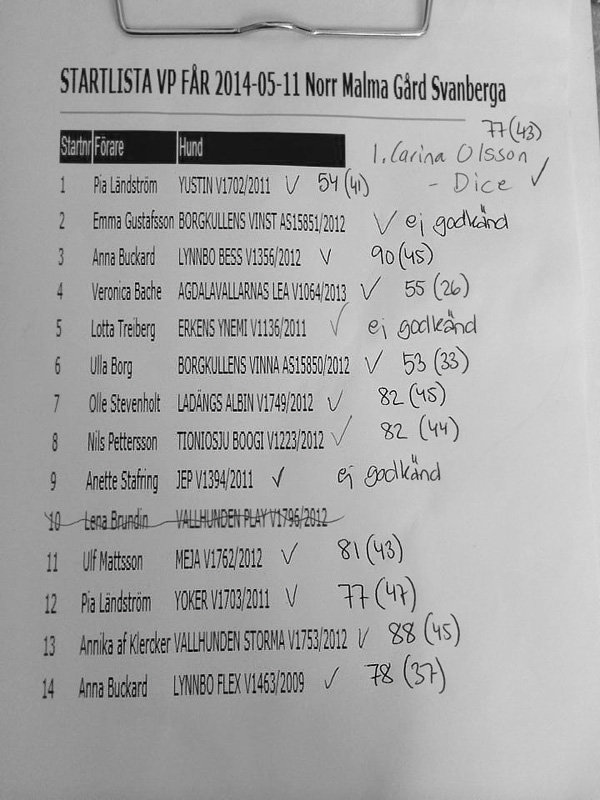 STARTLISTA VP FÅR 2014-05-11 Norr Malma Gård Svanberga
77(43)
Startnr Förare Hund 1. Carina Olsson
- Dice ✓
1 Pia Ländström YUSTIN V1702/2011 ✓ 54 (41)
2 Emma Gustafsson BORGKULLENS VINST AS15851/2012 ✓ ej godkänd
3 Anna Buckard LYNNBO BESS V1356/2012 ✓ 90 (45)
4 Veronica Bache AGDALAVALLARNAS LEA V1064/2013 ✓ 55 (26)
5 Lotta Treiberg ERKENS YNEMI V1136/2011 ✓ ej godkänd
6 Ulla Borg BORGKULLENS VINNA AS15850/2012 ✓ 53 (33)
7 Olle Stevenholt LADÄNGS ALBIN V1749/2012 ✓ 82 (45)
8 Nils Pettersson TIONIOSJU BOOGI V1223/2012 ✓ 82 (44)
9 Anette Stafring JEP V1394/2011 ✓ ej godkänd
10 Lena Brundin VALLHUNDEN PLAY V1796/2012
11 Ulf Mattsson MEJA V1762/2012 ✓ 81 (43)
12 Pia Ländström YOKER V1703/2011 ✓ 77 (47)
13 Annika af Klercker VALLHUNDEN STORMA V1753/2012 ✓ 88 (45)
14 Anna Buckard LYNNBO FLEX V1463/2009 ✓ 78 (37)